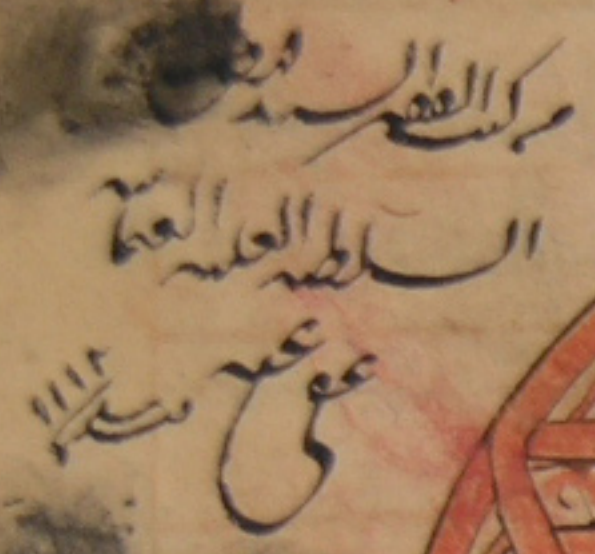 من كتب الفقير السيد
السلطنه العليه العثمانيه
عفى عنه سنه ١١١٢